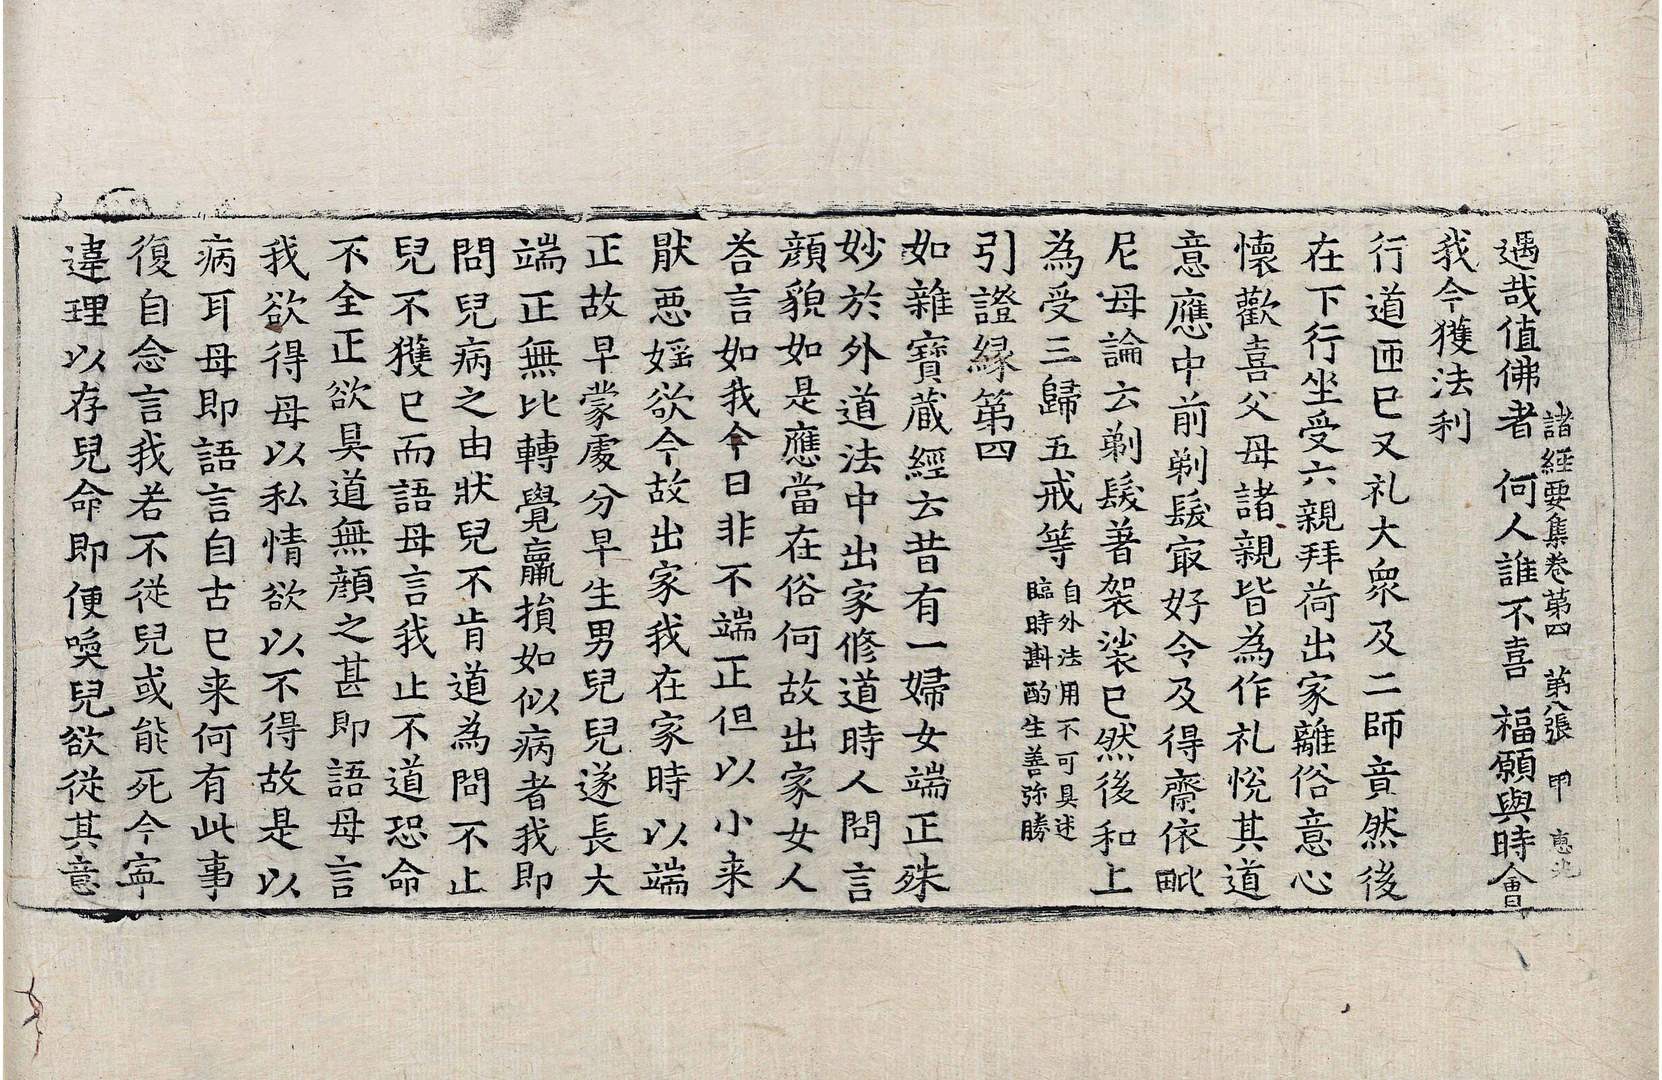 遇哉值佛者　何人誰不喜　福願與時會
諸經要集卷第四　第八張　甲　惠光
我今獲法利
行道匝巳又礼大衆及二師竟然後
在下行坐受六親拜荷出家離俗意心
懷歡喜父母諸親皆為作礼悅其道
意應中前剃髮㝡好令及得齋依毗
尼母論云剃髮著袈裟巳然後和上
為受三歸五戒等自外法用不可具述臨時斟酌生善弥勝
引證縁第四
如雜寶蔵經云昔有一婦女端正殊
妙於外道法中出家修道時人問言
顏貌如是應當在俗何故出家女人
荅言如我今日非不端正但以小来
猒惡婬欲今故出家我在家時以端
正故早蒙處分早生男兒兒遂長大
端正無比轉覺羸損如似病者我即
問兒病之由狀兒不肯道為問不止
兒不獲巳而語母言我止不道恐命
不全正欲具道無顏之甚即語母言
我欲得母以私情欲以不得故是以
病耳母即語言自古巳来何有此事
復自念言我若不從兒或能死今寧
違理以存兒命即便喚兒欲從其意